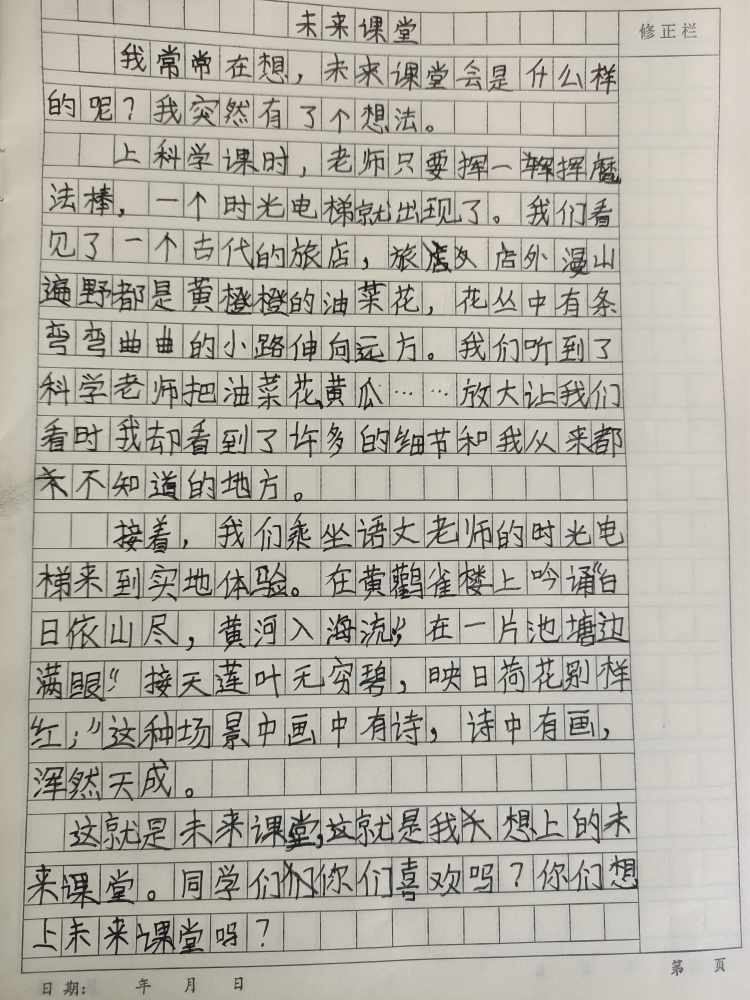 未来课堂
修正栏
我常常在想，未来课堂会是什么样
的呢？我突然有了个想法。
上科学课时，老师只要挥一挥魔
法棒，一个时光电梯就出现了。我们看
见了一个古代的旅店，旅店外漫山
遍野都是黄橙橙的油菜花，花丛中有条
弯弯曲曲的小路伸向远方。我们听到了
科学老师把油菜花、黄瓜……放大让我们
看时我却看到了许多的细节和我从来都
不知道的地方。
接着，我们乘坐语文老师的时光电
梯来到实地体验。在黄鹳雀楼上吟诵“白
日依山尽，黄河入海流”，在一片池塘边
满眼“接天莲叶无穷碧，映日荷花别样
红；”这种场景中画中有诗，诗中有画，
浑然天成。
这就是未来课堂，这就是我想上的未
来课堂。同学们你们喜欢吗？你们想
上未来课堂吗？
第 页
日期： 年 月 日